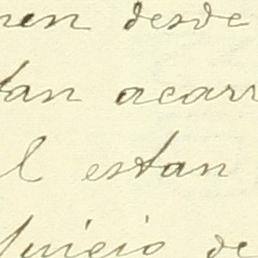 nen desde
tan acarr
l estan
juicio de